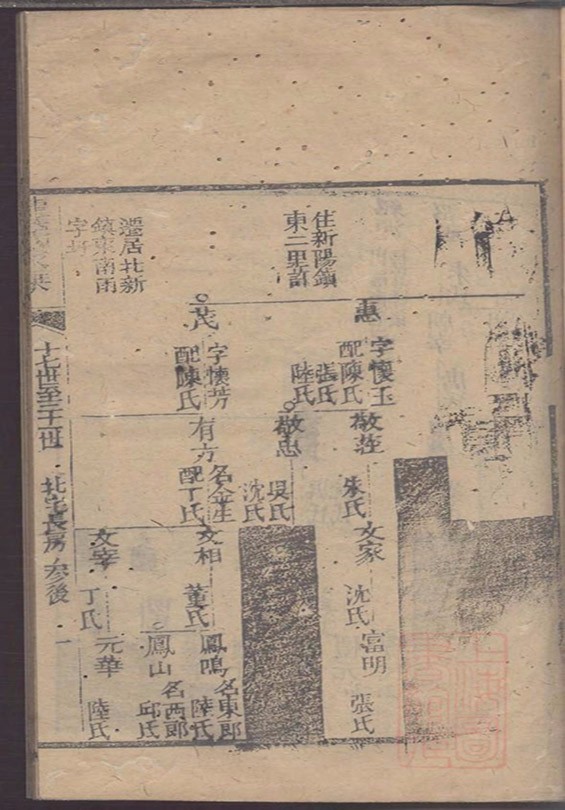 住新陽鎮
東二里許
遷居北新
鎮東南雨
字圩
惠
字懷玉
配陳氏
張氏
陸氏
茂
字懷芳
配陳氏
敬莊
朱氏
敬忠
吳氏
沈氏
有方
名金生
配丁氏
文家
沈氏
文相
董氏
文宰
丁氏
富明
張氏
鳳鳴
名東郎
陸氏
鳳山
名西郎
邱氏
元華
陸氏
十七世至二十一世
北宅長房
後
一